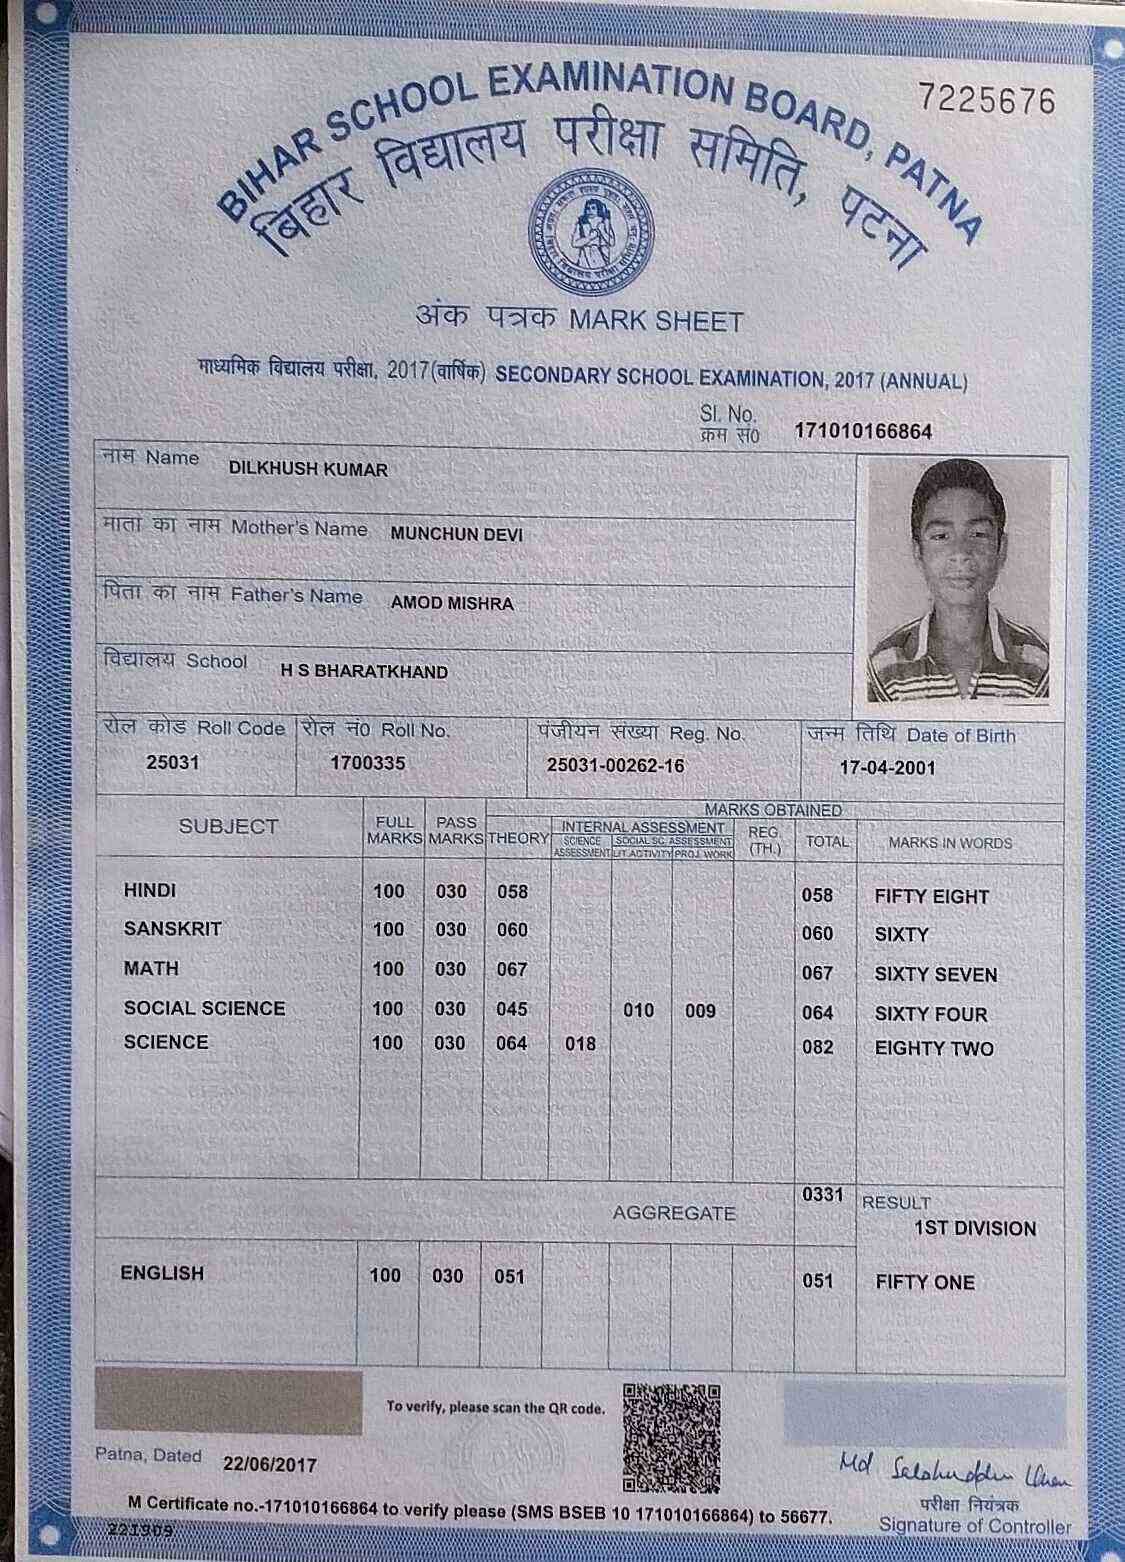 7225676
BIHAR SCHOOL EXAMINATION BOARD, PATNA
बिहार विद्यालय परीक्षा समिति, पटना
अंक पत्रक MARK SHEET
माध्यमिक विद्यालय परीक्षा, 2017(वार्षिक) SECONDARY SCHOOL EXAMINATION, 2017 (ANNUAL)
Sl. No.
क्रम सं0 171010166864
नाम Name DILKHUSH KUMAR
माता का नाम Mother's Name MUNCHUN DEVI
पिता का नाम Father's Name AMOD MISHRA
विद्यालय School H S BHARATKHAND
रोल कोड Roll Code रोल नं0 Roll No. पंजीयन संख्या Reg. No. जन्म तिथि Date of Birth
25031 1700335 25031-00262-16 17-04-2001
MARKS OBTAINED
SUBJECT FULL MARKS PASS MARKS THEORY INTERNAL ASSESSMENT REG. (TH.) TOTAL MARKS IN WORDS
SCIENCE ASSESSMENT SOCIAL SC. ASSESSMENT
LIT.ACTIVITY PROJ. WORK
HINDI 100 030 058 058 FIFTY EIGHT
SANSKRIT 100 030 060 060 SIXTY
MATH 100 030 067 067 SIXTY SEVEN
SOCIAL SCIENCE 100 030 045 010 009 064 SIXTY FOUR
SCIENCE 100 030 064 018 082 EIGHTY TWO
AGGREGATE 0331 RESULT
1ST DIVISION
ENGLISH 100 030 051 051 FIFTY ONE
To verify, please scan the QR code.
Patna, Dated 22/06/2017
Md Salahuddin Khan
परीक्षा नियंत्रक
Signature of Controller
M Certificate no.-171010166864 to verify please (SMS BSEB 10 171010166864) to 56677.
221909